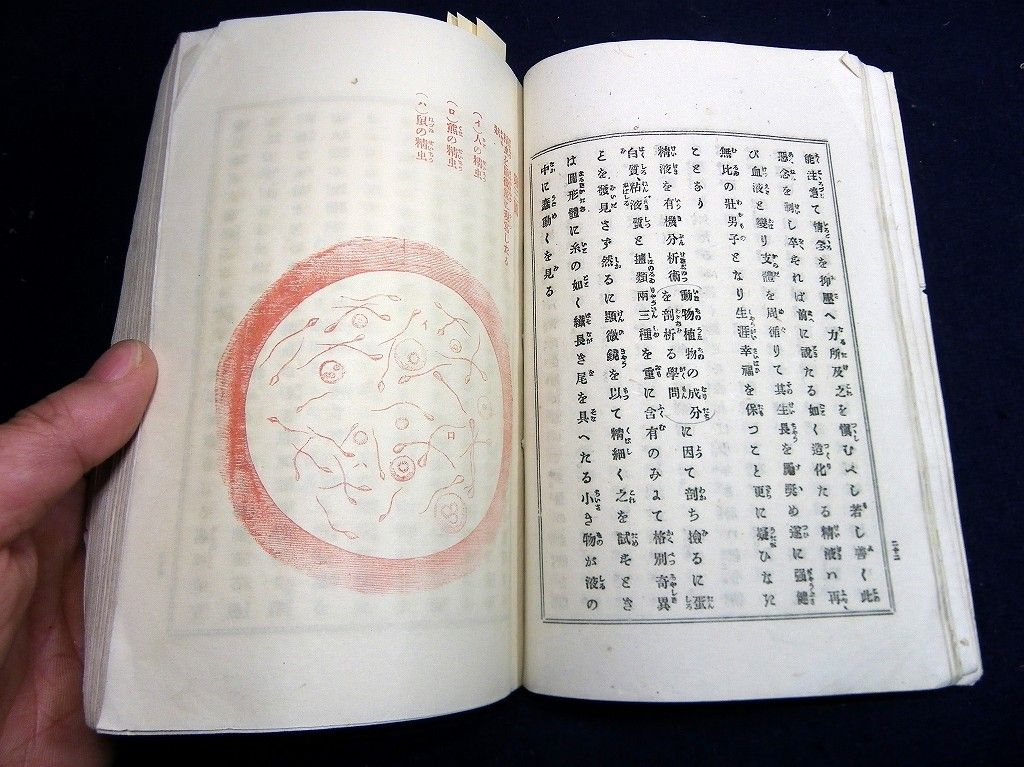 能注意て情念を抑壓へ力所及之を愼むべし若し善く此
慾念を制し卒それば前に說たる如く造化たる精液ハ再
び血液と變り支體を周循りて其生長を勵奬め遂に强健
無比の壯男子となり生涯幸福を保つこと更に疑ひなた
ことあり
精液を有機分析術を剖析る學問動物植物の成分に因て剖ち撿るに蛋
白質、粘液質と鹽類兩三種を重に含有のみよて格別奇異
とを發見さず然るに顯微鏡を以て精細く之を試むとき
は圓形體に糸の如く纎長き尾を具へたる小き物が液の
中に蠢動くを見る
二十二
(イ)人の精虫
(ロ)熊の精虫
(ハ)鼠の精虫
イ
ロ